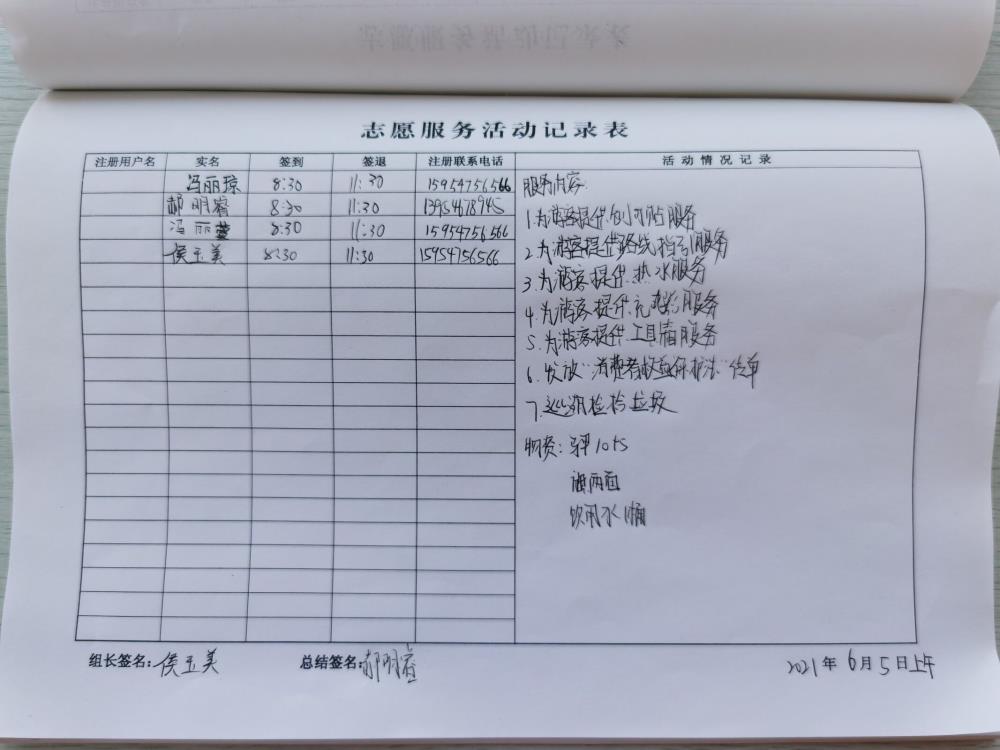 志愿服务活动记录表
注册用户名 实名 签到 签退 注册联系电话 活动情况记录
冯丽琼 8:30 11:30 15954756566
郝明睿 8:30 11:30 13954678945
冯丽萱 8:30 11:30 15954756566
侯玉美 8:30 11:30 15954756566
服务内容:
1.为游客提供创可贴服务
2.为游客提供路线指引服务
3.为游客提供热水服务
4.为游客提供充电服务
5.为游客提供工具箱服务
6.发放“消费者权益保护法”传单
7.巡湖捡拾垃圾
物资:
饮用水1桶
组长签名:侯玉美 总结签名:郝明睿 2021年6月5日上午